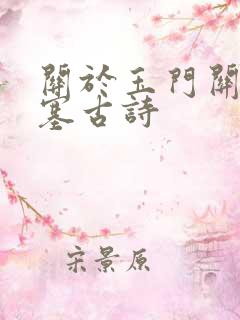 關於玉門關
塞古詩
宋景原